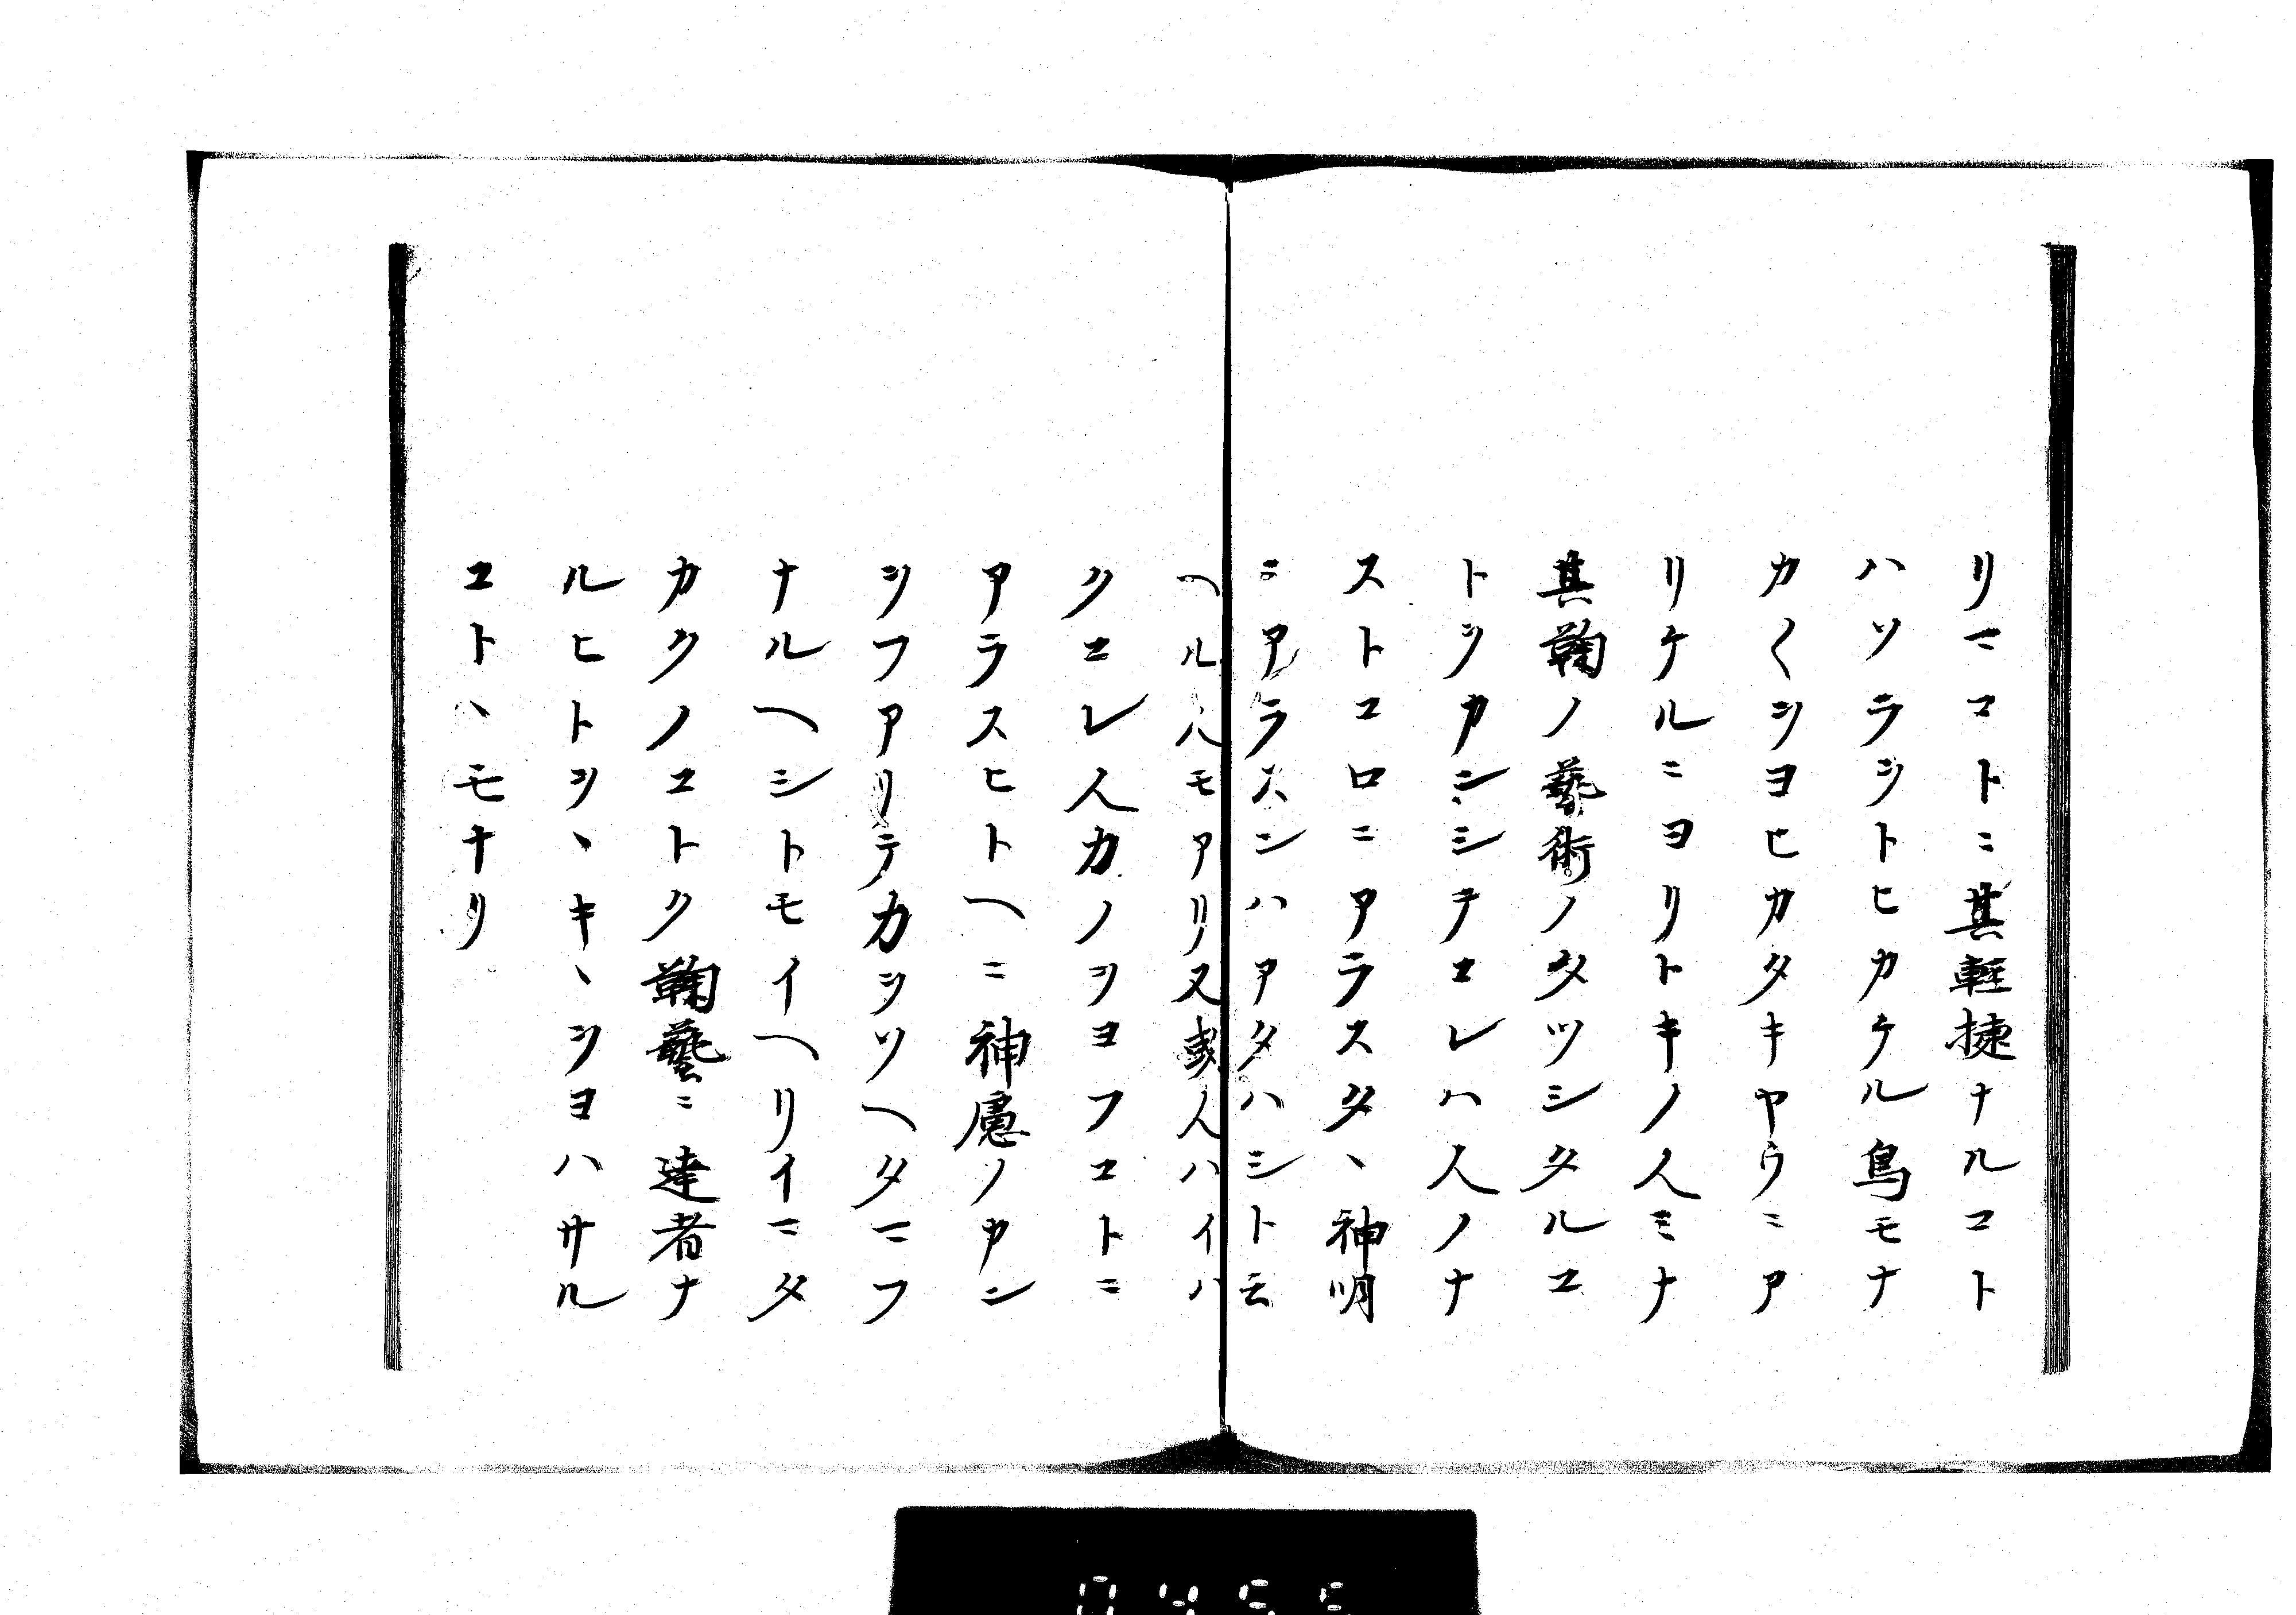 リマコトニ其軽捷ナルコト
ハソラヲトヒカケル鳥モナ
カ〱ヲヨヒカタキヤウニア
リケルニヨリトキノ人ミナ
其鞠ノ藝術ノタツシタルコ
トヲカンシテコレハ人ノナ
ストコロニアラスタヽ神明
ニアラスンハアタハシト云
ヘル人モアリ又或人ハイハ
クコレ人力ノヲヨフコトニ
アラスヒトヘニ神慮ノカン
ヲフアリテカヲソヘタマフ
ナルヘシトモイヘリイニタ
カクノコトク鞠藝ニ達者ナ
ルヒトヲヽキヽヲヨハサル
コトヽモナリ